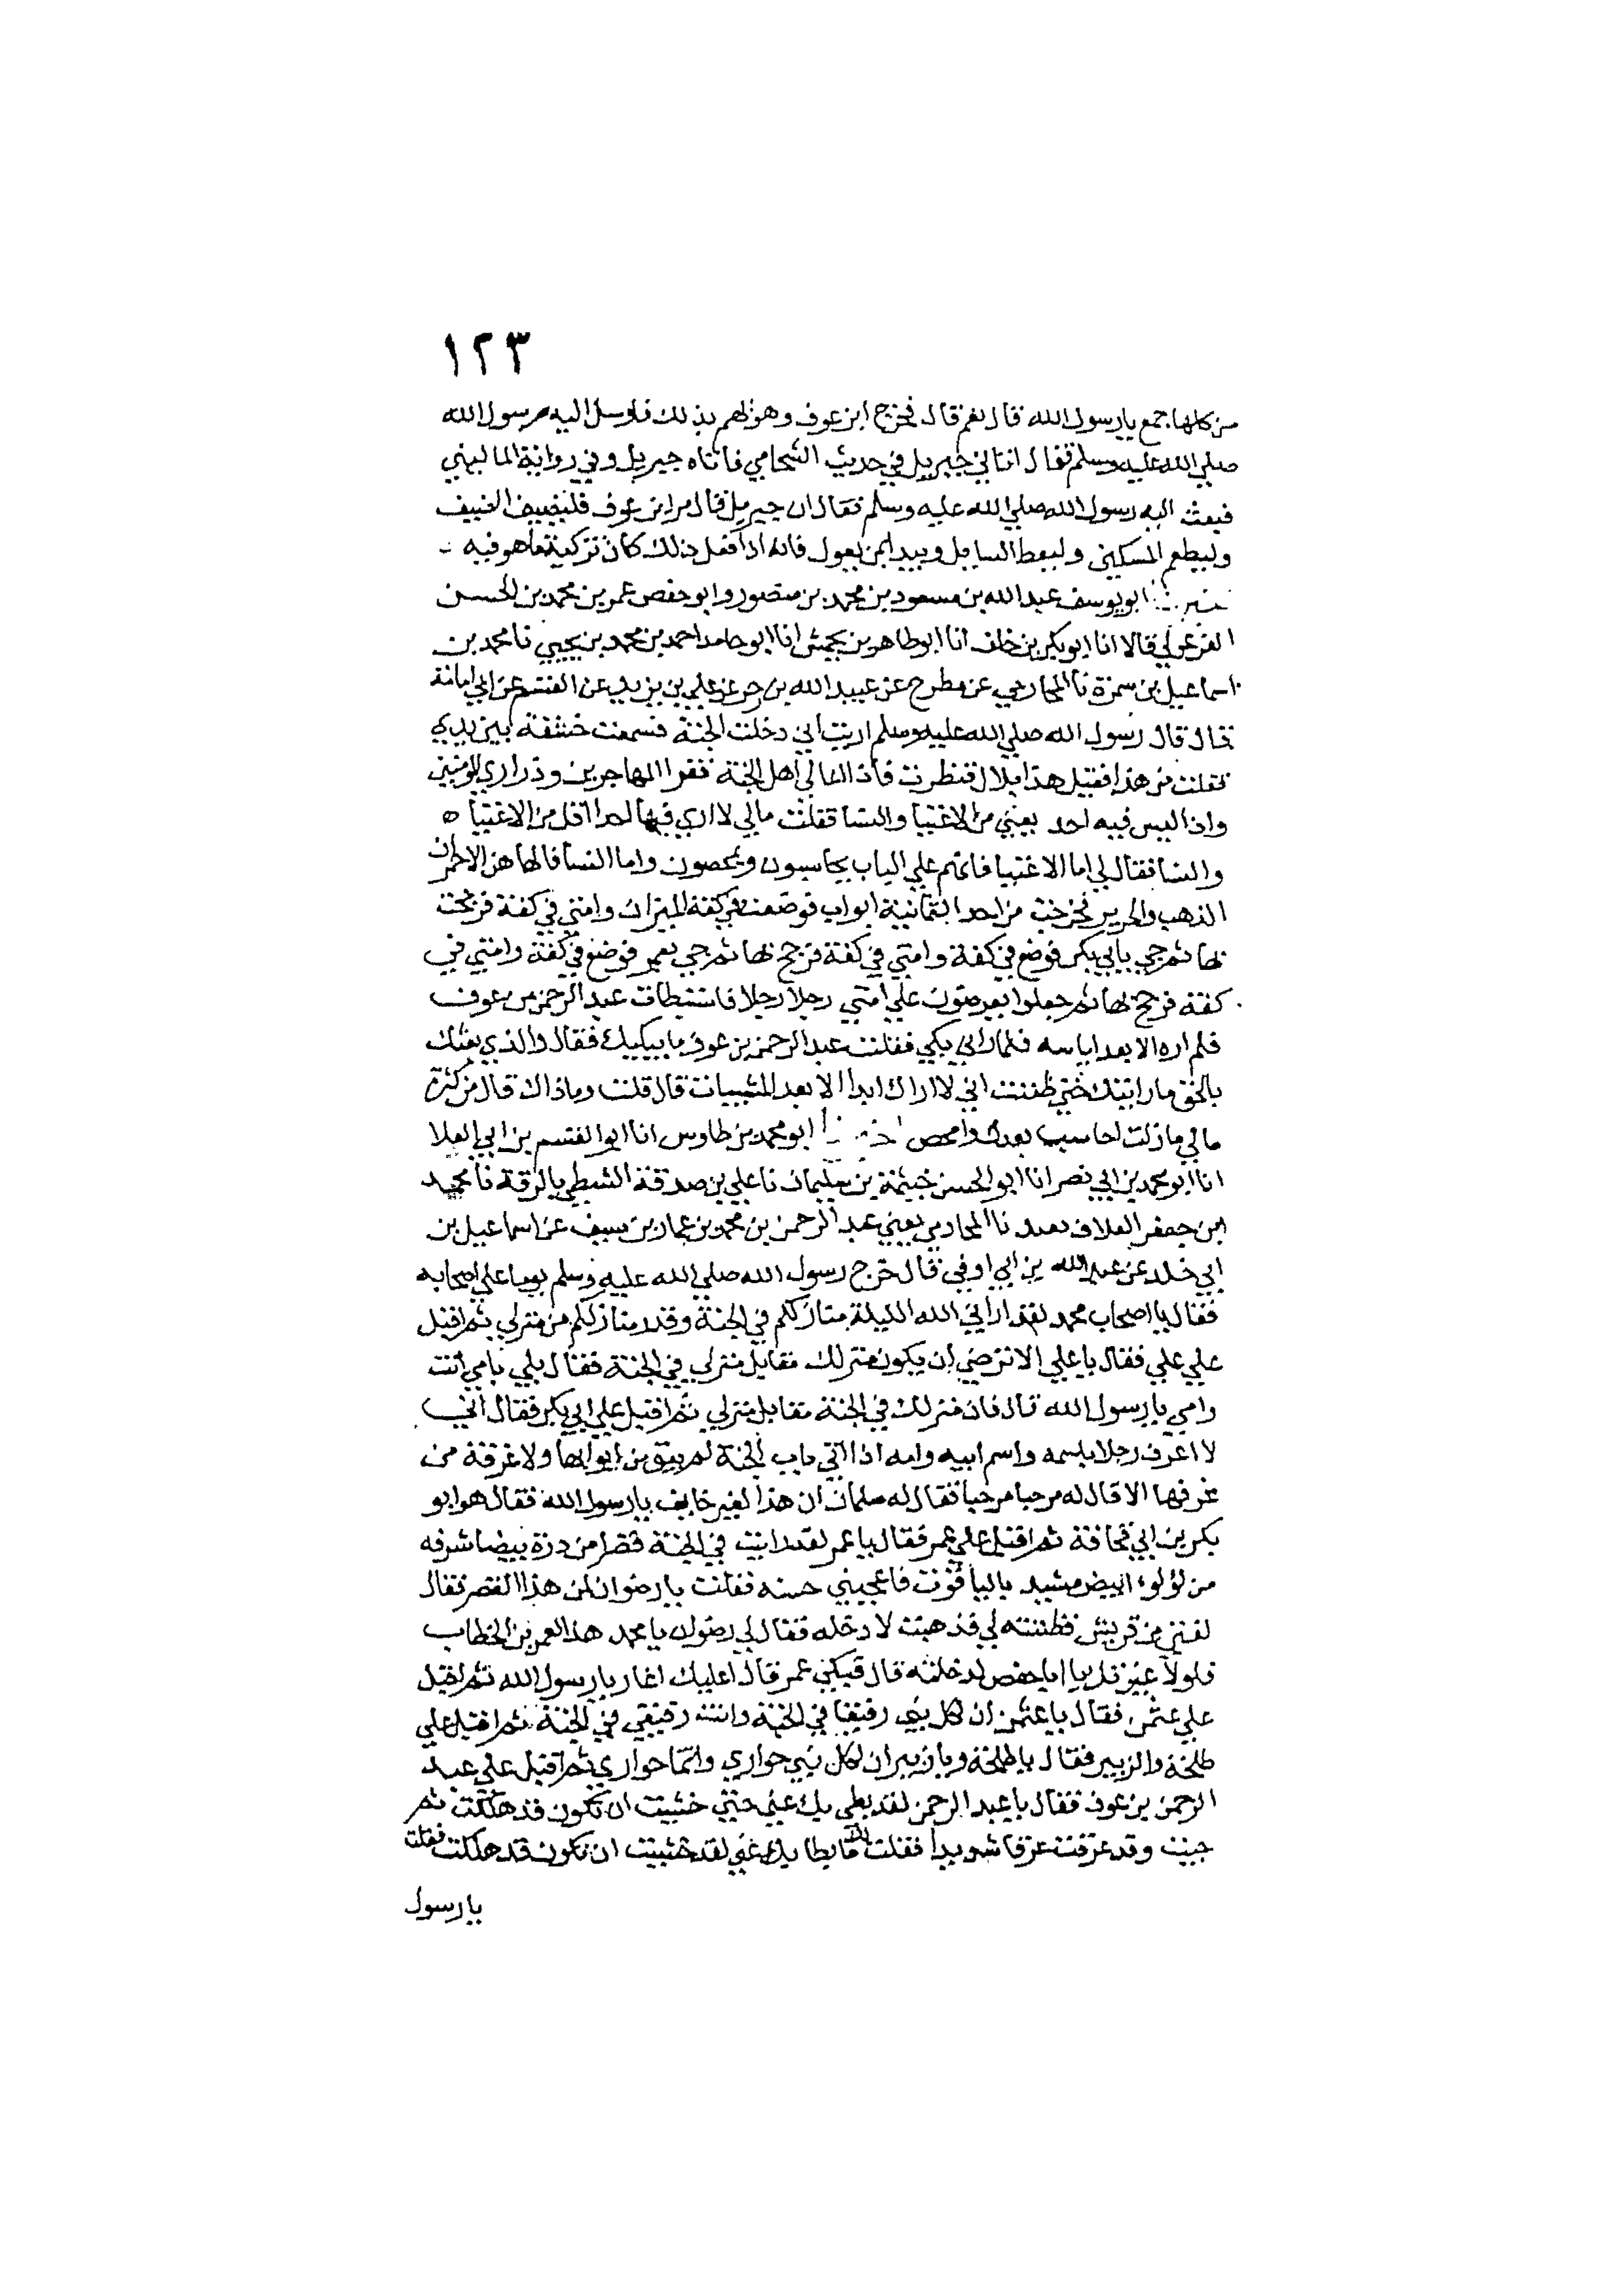 ١٢٣
من كلها جمع يا رسول الله قال نعم قال فخرج ابن عوف وهو لهم بذلك فارسل اليه رسول الله
صلي الله عليه وسلم فقال اتاني جبريل في حديث الشحامي فاتاه جبريل وفي رواية الماليني
فبعث اليه رسول الله صلي الله عليه وسلم فقال ان جبريل قال مر ابن عوف فليضيف الضيف
وليطعم المسكين وليعط السايل ويبدا بمن يعول فانه اذا فعل ذلك كان تزكية ما هو فيه
ابو يوسف عبد الله بن مسعود بن محمد بن منصور وابو حفص عمر بن محمد بن الحسن
الفرغولي قالا انا ابو بكر بن خلف انا ابو طاهر بن محمش انا ابو حامد احمد بن محمد بن يحيي نا محمد بن
اسماعيل بن سمرة نا المحاربي عن مطرح عن عبيد الله بن زحر عن علي بن يزيد عن القسم عن ابي امامة
قال قال رسول الله صلي الله عليه وسلم اريت اني دخلت الجنة فسمعت خشفة بين يدي
فقلت من هذا فقيل هذا بلال فنظرت فاذا اعالي اهل الجنة فقرا المهاجرين وذراري المومنين
واذا ليس فيه احد يعني من الاغنيا والنسا فقلت مالي لا اري فيها احدا اقل من الاغنيا ه
والنسا فقال لي اما الاغنيا فانهم علي الباب يحاسبون ويمحصون واما النسا فالهاهن الاحمران
الذهب والحرير فخرجت من احد الثمانية ابواب فوضعت في كفة الميزان وامتي في كفة فرجحت
بها ثم جي بابي بكر فوضع في كفة وامتي في كفة فرجح بها ثم جي بعمر فوضع في كفة وامتي في
كفة فرجح بها ثم جعلوا يعرضون علي امتي رجلا رجلا فاستبطات عبد الرحمن بن عوف
فلم اره الا بعد اياسه فلما راني بكي فقلت عبد الرحمن بن عوف ما يبكيك فقال والذي بعثك
بالحق ما رايتك حتي ظننت اني لا اراك ابدا الا بعد المشيبات قال قلت وماذاك قال من كثرة
مالي ما زلت احاسب بعدك وامحص ابو محمد بن طاوس انا ابو القسم بن ابي العلا
انا ابو محمد بن ابي نصر انا ابو الحسن خيثمة بن سليمان نا علي بن صدقة الشطي بالرقة نا محمد
ابن جعفر العلاف نا المحاربي يعني عبد الرحمن بن محمد بن عمار بن سيف عن اسماعيل بن
ابي خلد عن عبد الله بن ابي اوفي قال خرج رسول الله صلي الله عليه وسلم يوما علي اصحابه
فقال يا اصحاب محمد لقد اراني الله الليلة منازلكم في الجنة وقدر منازلكم من منزلي ثم اقبل
علي علي فقال يا علي الا ترضي ان يكون منزلك مقابل منزلي في الجنة فقال بلي بابي انت
وامي يا رسول الله قال فان منزلك في الجنة مقابل منزلي ثم اقبل علي ابي بكر فقال اني
لا اعرف رجلا باسمه واسم ابيه وامه اذا اتي باب الجنة لم يبق من ابوابها ولا غرفة من
غرفها الا قال له مرحبا مرحبا فقال له سلمان ان هذا لغير خايف يا رسول الله فقال هو ابو
بكر بن ابي قحافة ثم اقبل علي عمر فقال يا عمر لقد رايت في الجنة قصرا من درة بيضا شرفه
من لولو ابيض مشيد بالياقوت فاعجبني حسنه فقلت يا رضوان لمن هذا القصر فقال
لفتي من قريش فظننته لي فذهبت لادخله فقال لي رضوان يا محمد هذا لعمر بن الخطاب
فلولا غيرتك يا ابا حفص لدخلته قال فبكي عمر قال اعليك اغار يا رسول الله ثم اقبل
علي عثمن فقال يا عثمن ان لكل نبي رفيقا في الجنة وانت رفيقي في الجنة ثم اقبل علي
طلحة والزبير فقال يا طلحة ويا زبير ان لكل نبي حواري وانتما حواري ثم اقبل علي عبد
الرحمن بن عوف فقال يا عبد الرحمن لقد بطي بك عني حتي خشيت ان تكون قد هلكت ثم
جيت وقد عرقت عرقا شديدا فقلت ما بطا بك عني لقد خشيت ان تكون قد هلكت فقلت
يا رسول